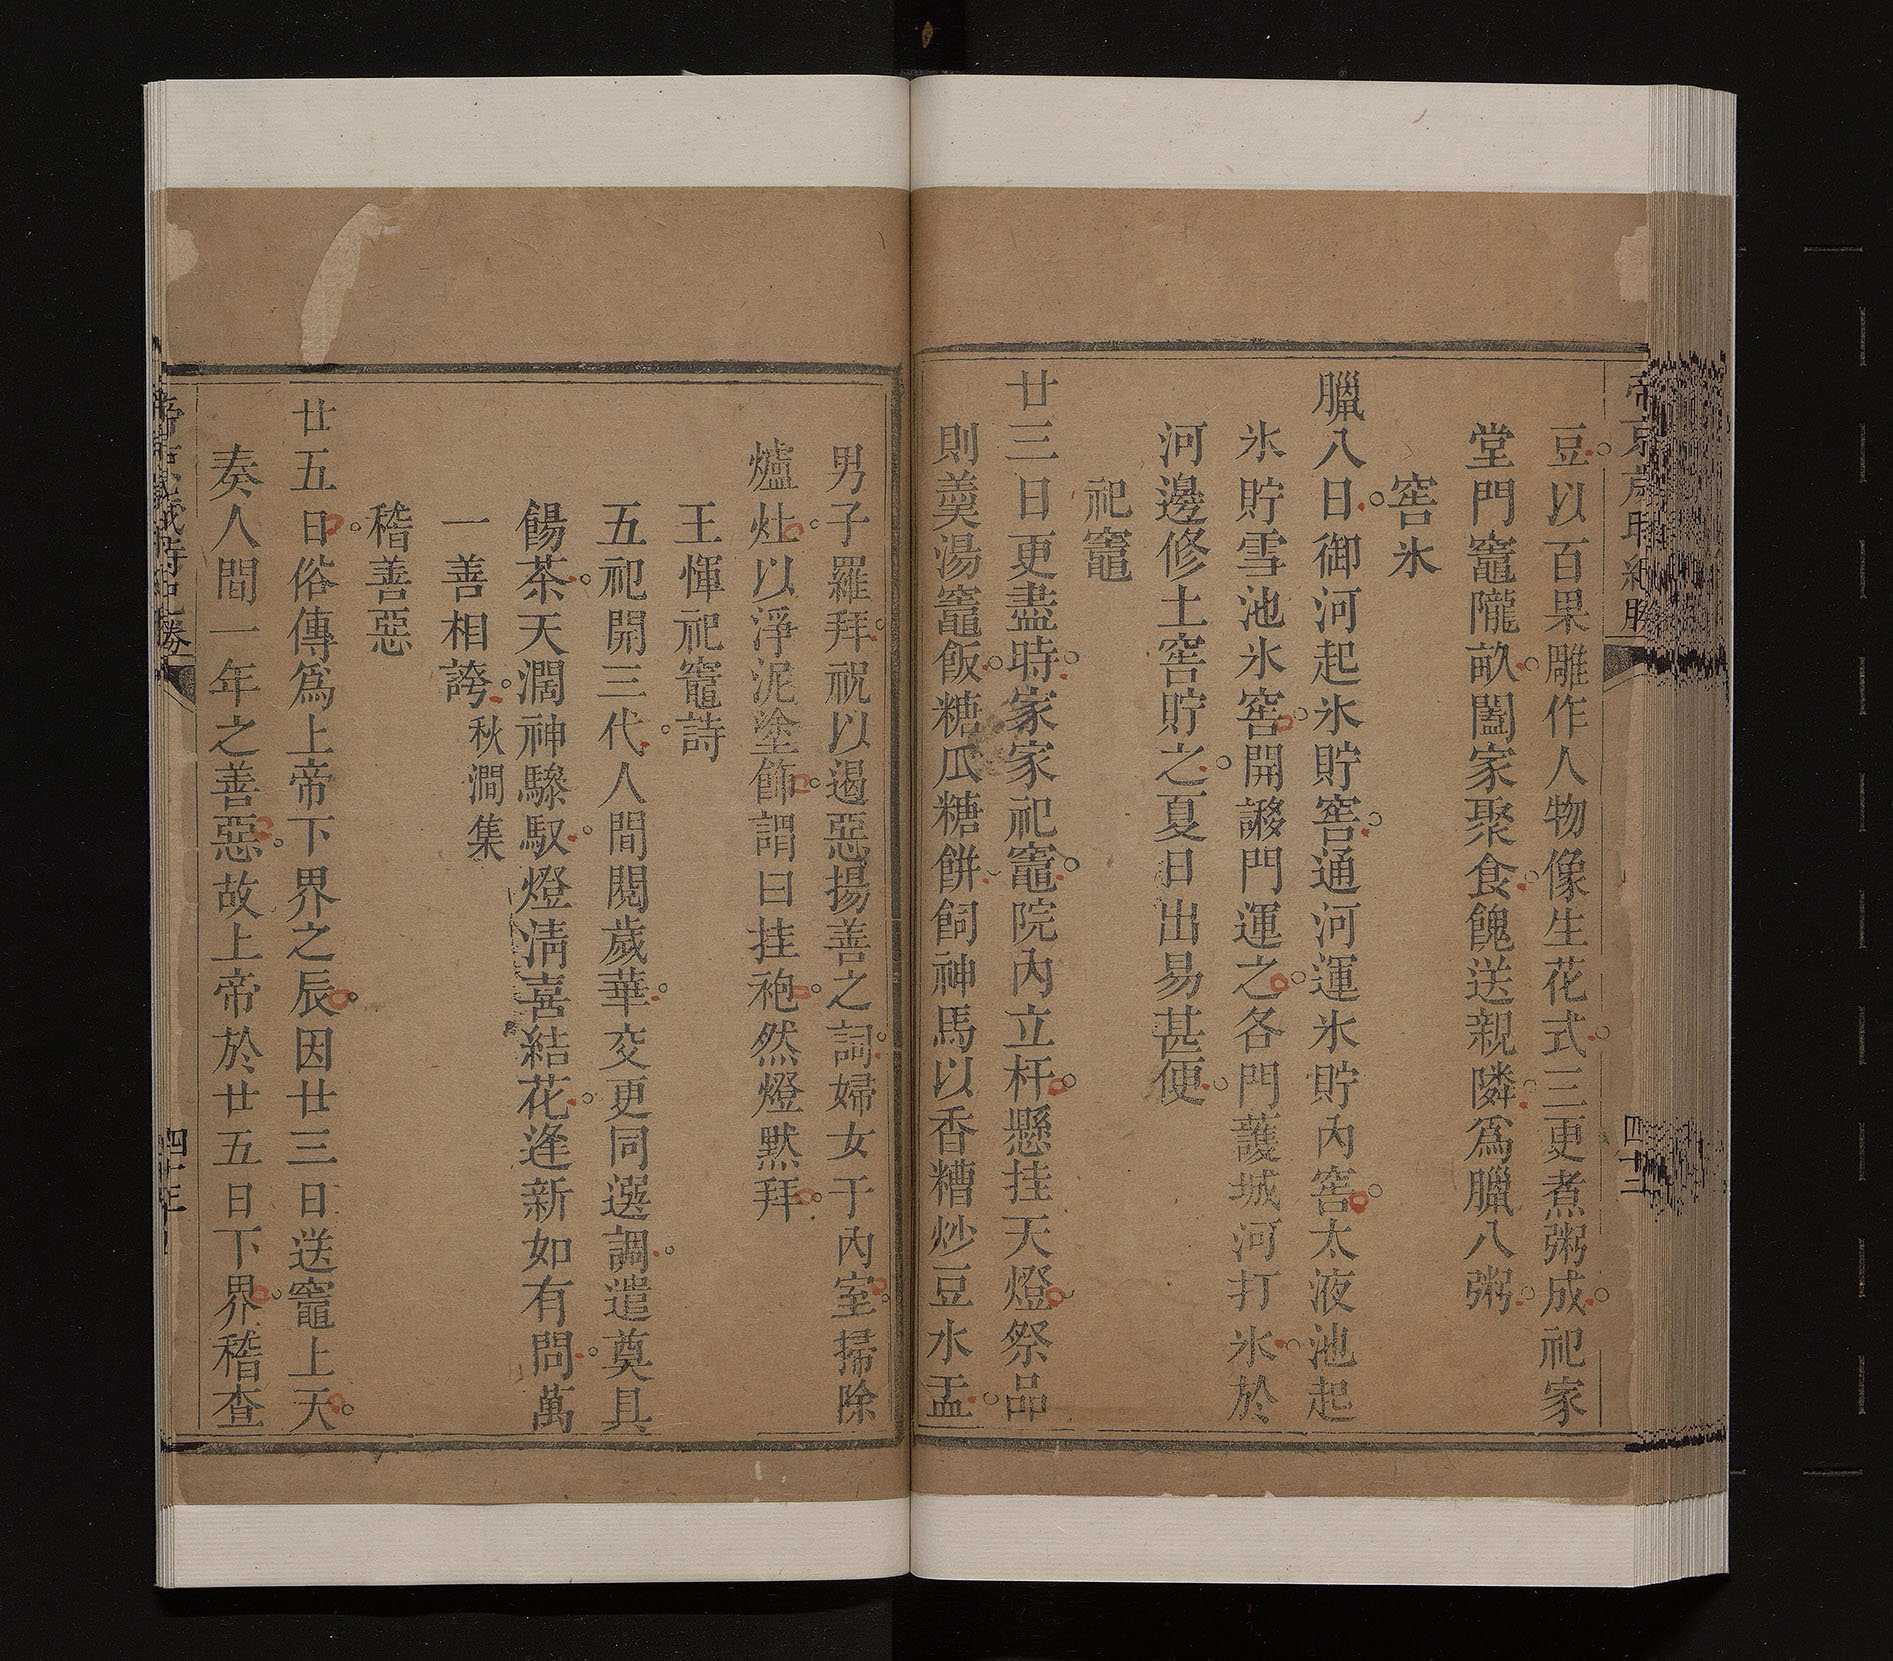 帝京歲時紀勝
四十三
豆。以百果雕作人物像生花式。三更煮粥成。祀家
堂門竈隴畝。闔家聚食。餽送親隣。爲臘八粥。
窖氷
臘八日。御河起氷貯窖。通河運氷貯內窖。太液池起
氷貯雪池氷窖。開諺門運之。各門護城河打氷。於
河邊修土窖貯之。夏日出易甚便。
祀竈
廿三日更盡時。家家祀竈。院內立杆。懸挂天燈。祭品
則羹湯竈飯。糖瓜糖餅。飼神馬以香糟炒豆水盂。
男子羅拜。祝以遏惡揚善之詞。婦女于內室。掃除
爐灶。以淨泥塗飾。謂曰挂袍。然燈默拜。
王惲祀竈詩
五祀開三代。人間閱歲華。交更同選調。遣奠具
餳茶。天濶神驂馭。燈淸喜結花。逢新如有問。萬
一善相誇。秋澗集
稽善惡
廿五日。俗傳爲上帝下界之辰。因廿三日送竈上天。
奏人間一年之善惡。故上帝於廿五日下界。稽查